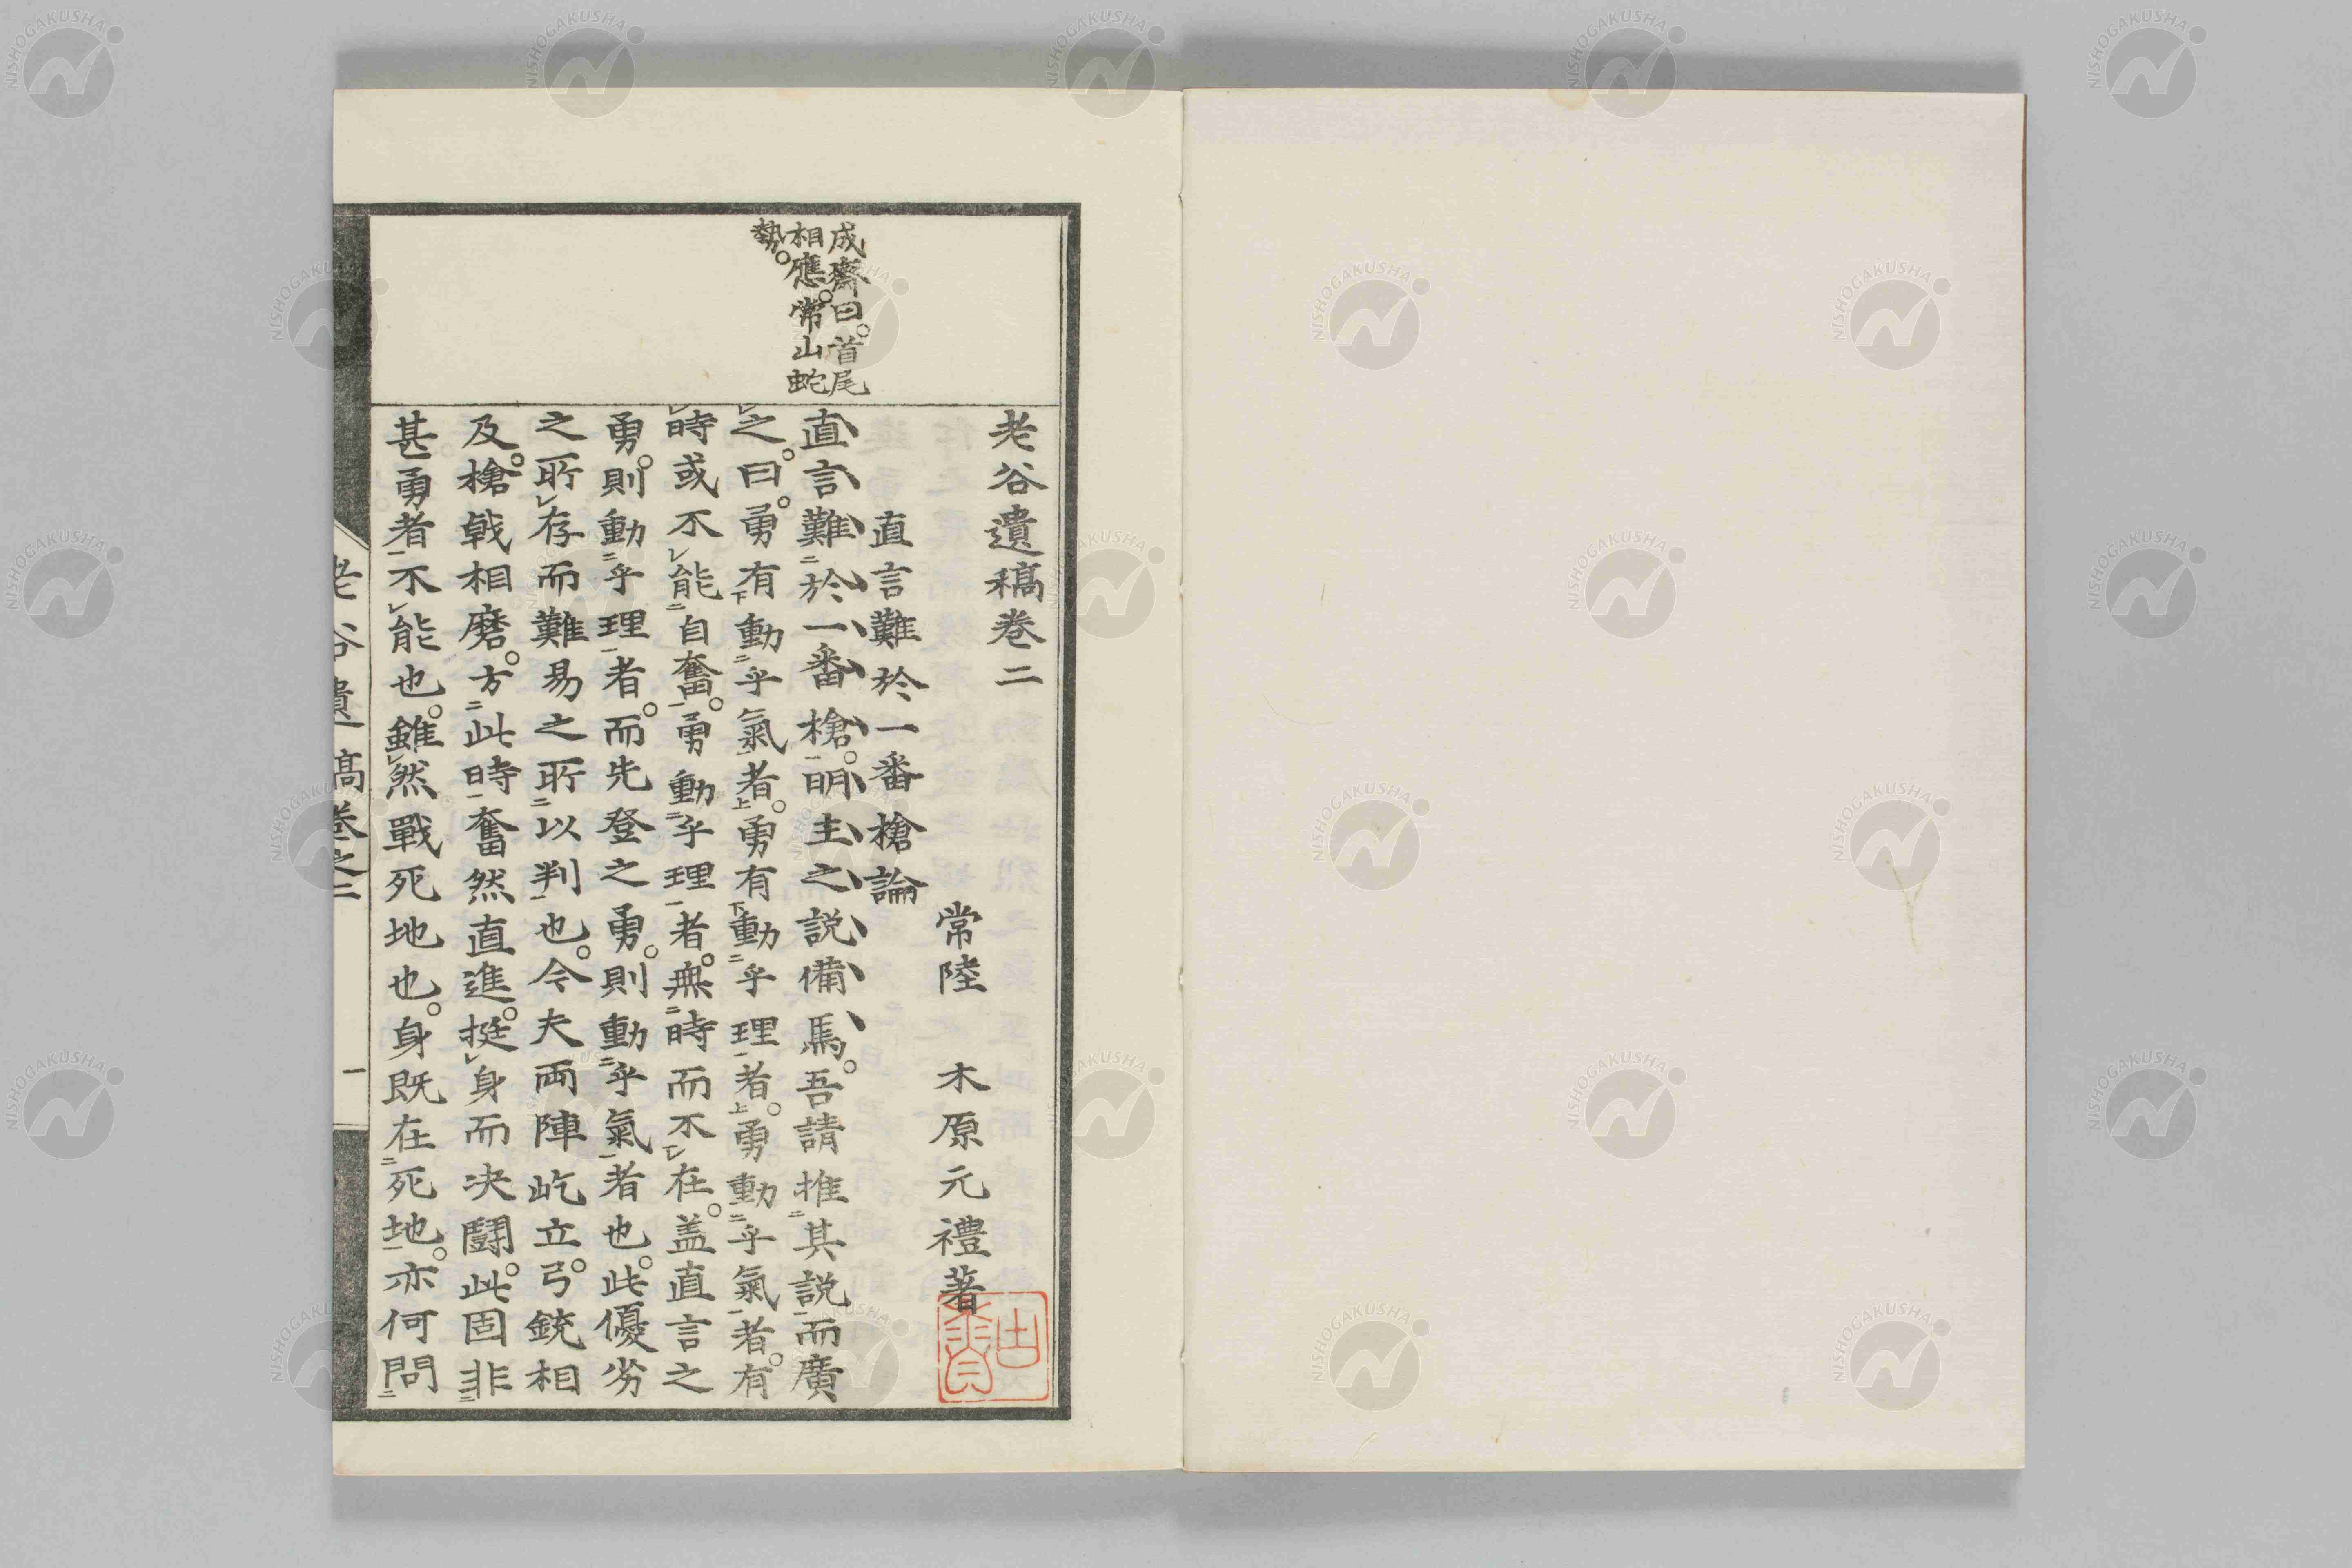 老谷遺稿卷二
常陸　木原元禮著
直言難於一番槍論
直言難於一番槍。明主之説備馬。吾請推其説而廣
之。曰。勇有動乎氣者。勇有動乎理者。勇動乎氣者。有
時或不能自奮。勇動乎理者。無時而不在。盖直言之
勇。則動乎理者。而先登之勇。則動乎氣者也。此優劣
之所存而難易之所以判也。今夫両陣屹立。弓銃相
及。槍戟相磨。方此時奮然直進。挺身而决鬪。此固非
甚勇者不能也。雖然戰死地也。身既在死地。亦何問
成齋曰。首尾
相應。常山蛇
勢。
老谷遺稿卷之二
一
NISHOGAKUSHA